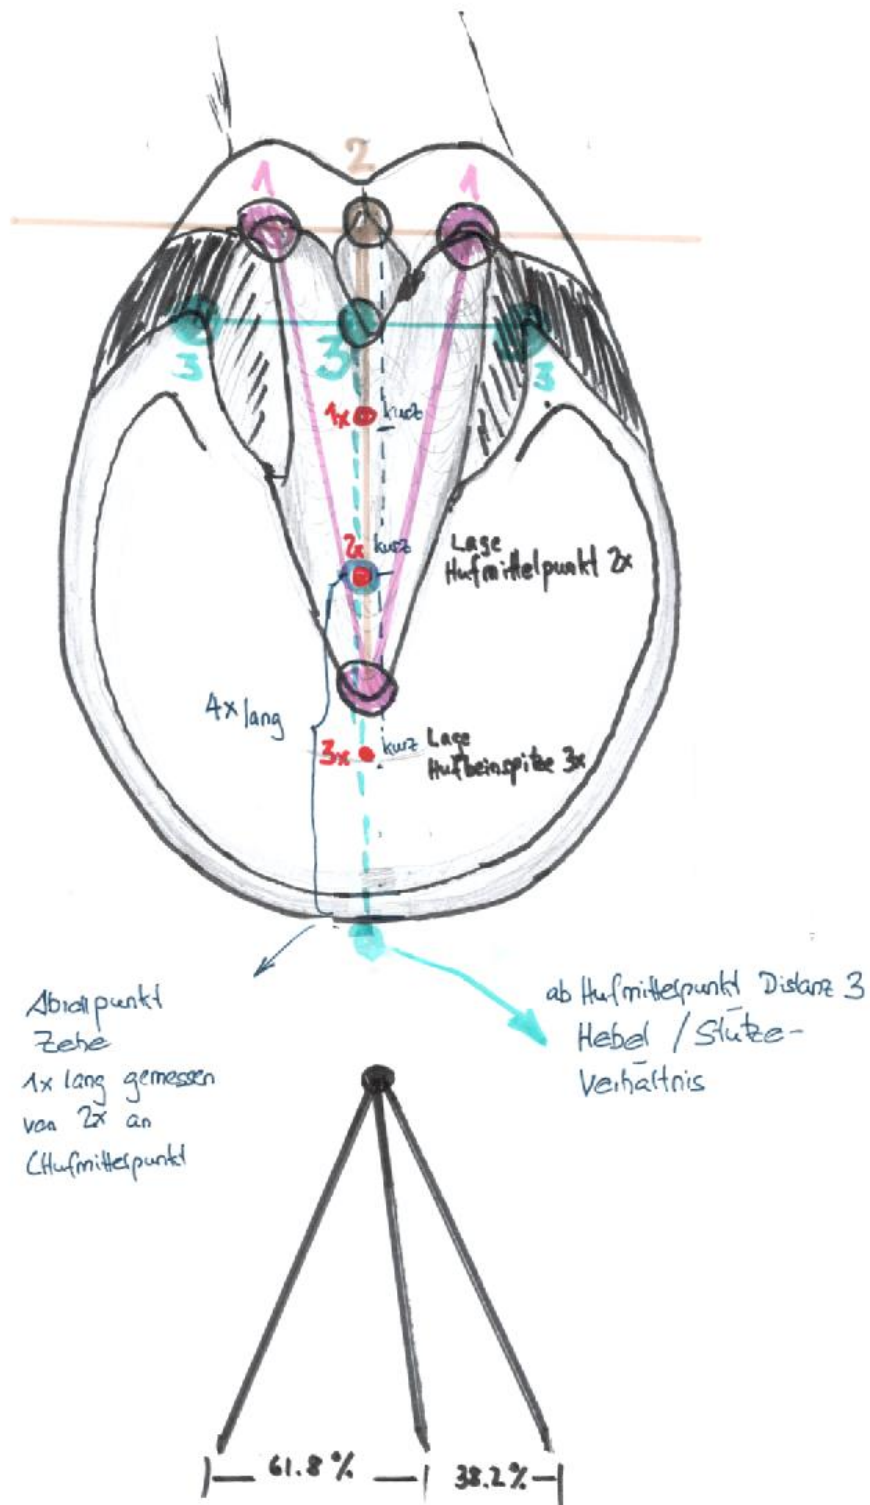 2
1 1
3 3 3
1x kurz
2x kurz
Lage
Hufmittelpunkt 2x
4x lang
3x kurz
Lage
Hufbeinspitze 3x
Abrollpunkt
Zehe
1x lang gemessen
von 2x an
(Hufmittelpunkt
ab Hufmittelpunkt Distanz 3
Hebel / Stütze-
Verhältnis
61.8% 38.2%